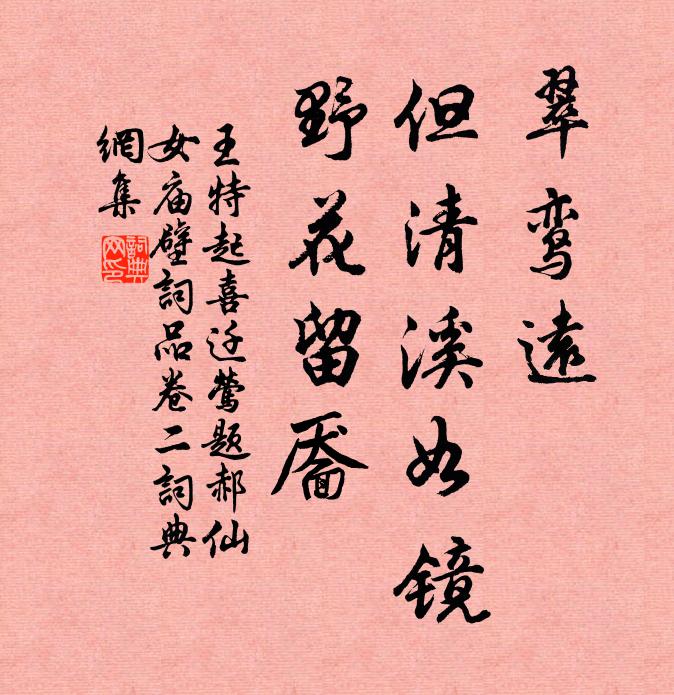 翠鸾遠
但清溪如镜
野花留靥
王特起喜迁莺题郝仙
女庙壁詞品卷二詞典
網集
詞典
网印